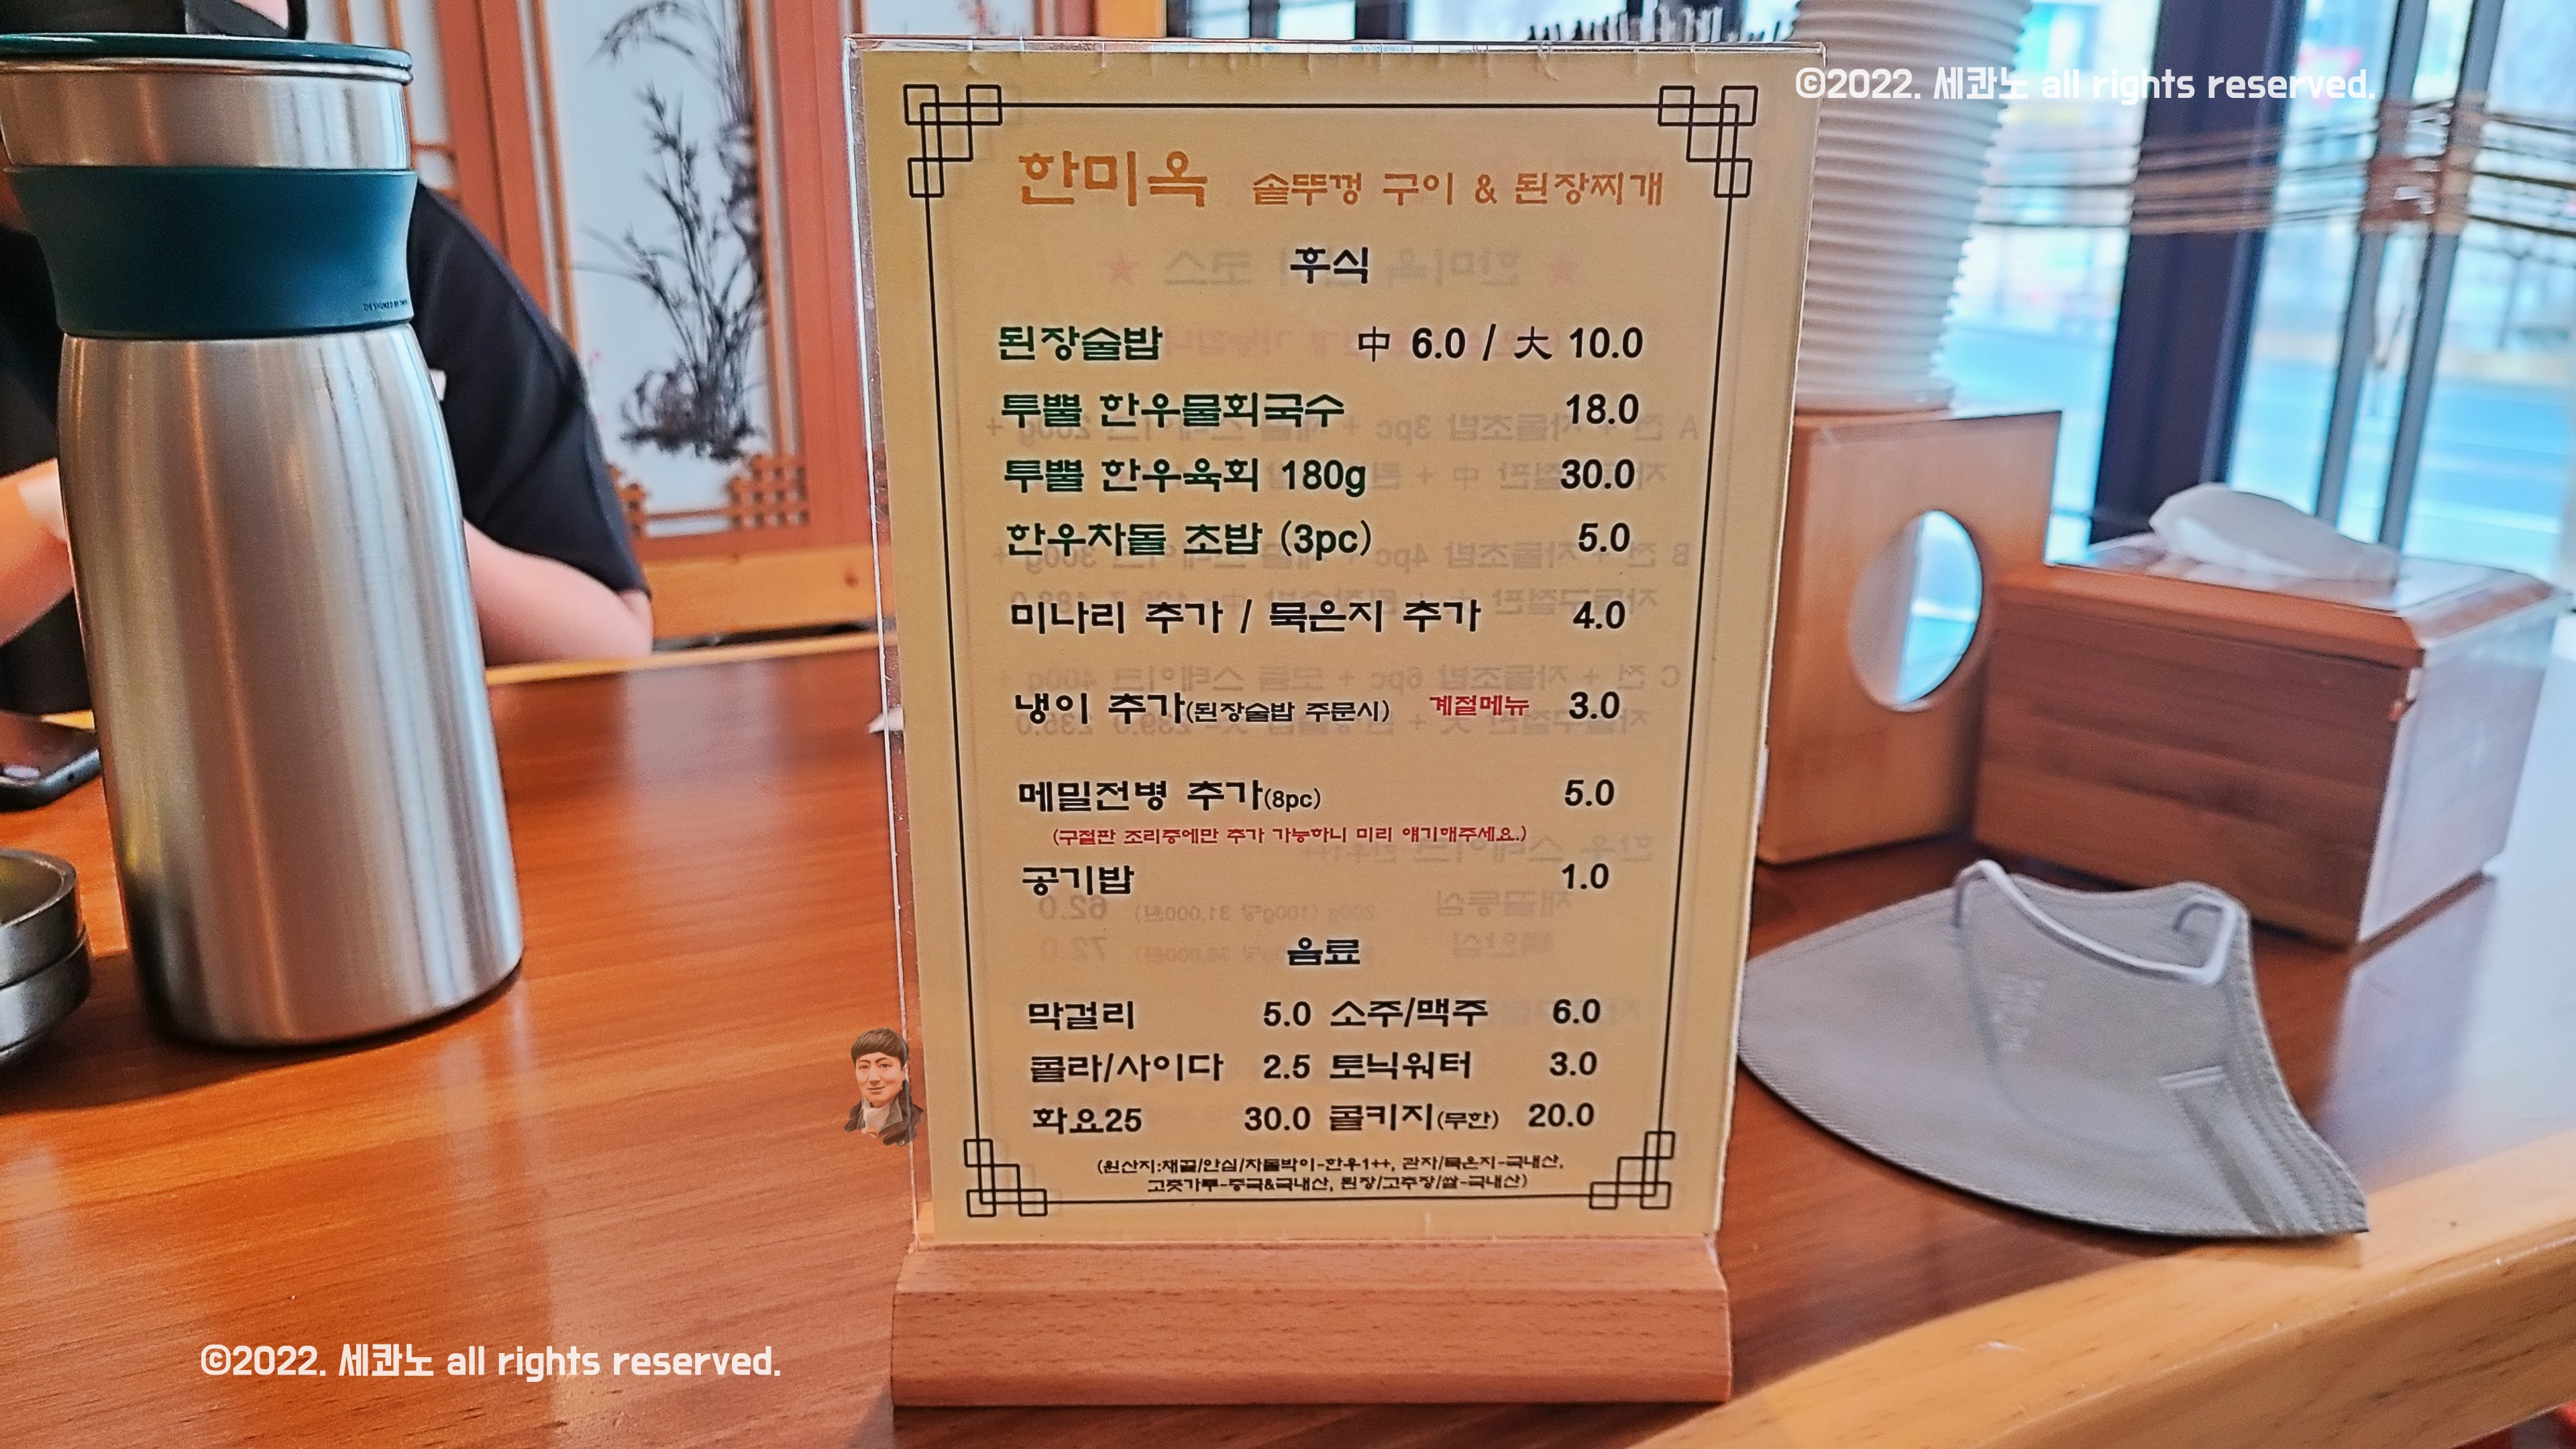 ©2022. 세콴노 all rights reserved.
한미옥 솥뚜껑 구이 & 된장찌개
후식
된장술밥 中 6.0 / 大 10.0
투뿔 한우물회국수 18.0
투뿔 한우육회 180g 30.0
한우차돌 초밥 (3pc) 5.0
미나리 추가 / 묵은지 추가 4.0
냉이 추가(된장술밥 주문시) 계절메뉴 3.0
메밀전병 추가(8pc) 5.0
(구절판 조리중에만 추가 가능하니 미리 얘기해주세요.)
공기밥 1.0
음료
막걸리 5.0 소주/맥주 6.0
콜라/사이다 2.5 토닉워터 3.0
화요25 30.0 콜키지(무한) 20.0
(원산지:채끝/안심/차돌박이-한우1++, 관자/묵은지-국내산,
고춧가루-중국&국내산, 된장/고추장/쌀-국내산)
©2022. 세콴노 all rights reserved.